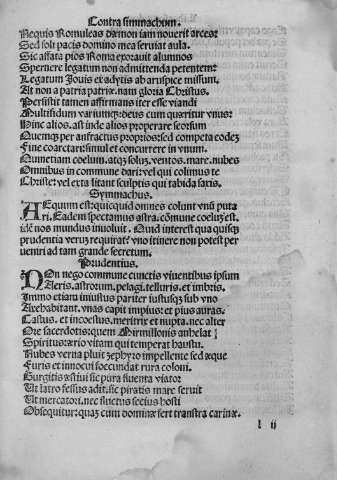 Contra simmachum.
Nequis Romuleas dæmon iam nouerit arces:
Sed soli pacis domino mea seruiat aula.
Sic affata pios Roma exorauit alumnos
Spernere legatum non admittenda petentem:
Legatum Iouis ex adytis ab aruspice missum.
At non a patria patrix. nam gloria Christus.
Persistit tamen affirmans iter esse viandi
Multifidum variumq; deus cum quæritur vnus:
Hinc alios. ast inde alios properare seorsum
Quemq; per anfractus proprios: sed compita eodem
Fine coarctari: simul et concurrere in vnum.
Numetiam coelum. atq; solum. ventos. mare. nubes
Omnibus in commune dari: vel qui colimus te
Christe: vel exta litant sculptis qui tabida saxis.
Symmachus.
AEquum est: quicquid omnes colunt vnū puta
ri. Eadem spectamus astra. cōmune coelum est.
idē nos mundus inuoluit. Quid interest qua quisq;
prudentia verum requirat? vno itinere non potest per
ueniri ad tam grande secretum.
Prudentius.
NOn nego commune cunctis viuentibus ipsum
Aeris. astrorum. pelagi. telluris. et imbris.
Immo etiam iniustus pariter iustusq; sub vno
Axe habitant. vnas capit impius: et pius auras.
Castus. et incoestus. meritrix et nupta. nec alter
Ore sacerdotis: quem Mirmillonis anhelat
Spiritus: ærio vitam qui temperat haustu.
Nubes verna pluit zephyro impellente sed æque
Furis et innocui foecundat rura coloni.
Gurgitis æstiui sic pura fluenta viator
Ut latro fessus adit. sic piratis mare seruit
Ut mercatori. nec fluctus secius hosti
Obsequitur: quam cum dominæ fert transtra carinæ.
l ij